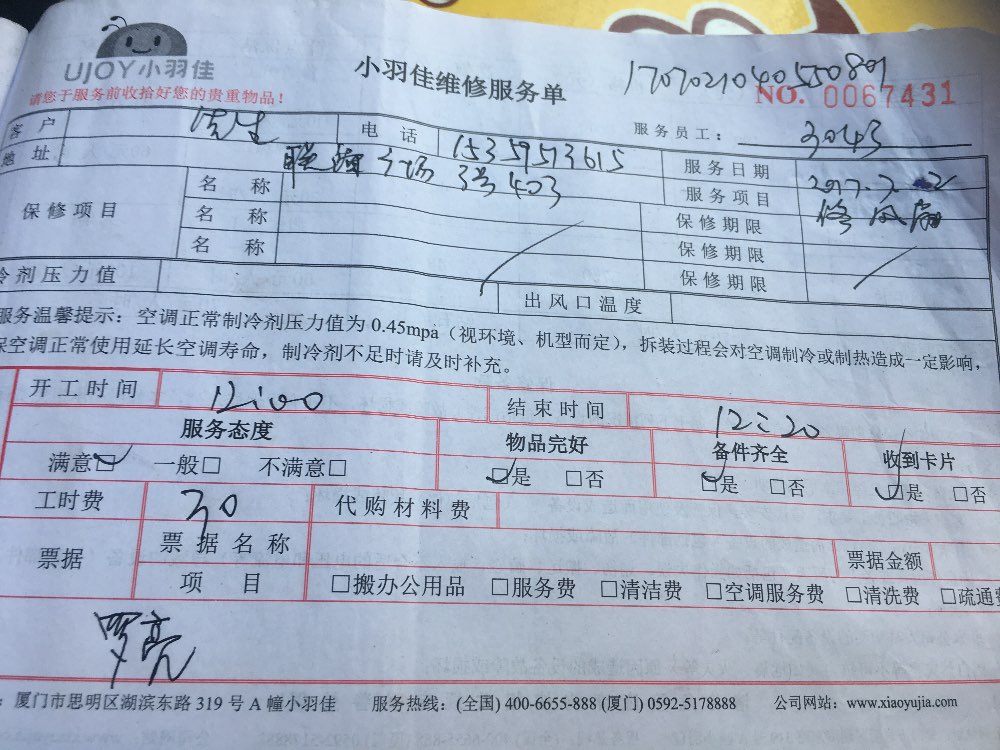 UJOY小羽佳
小羽佳维修服务单
1707021040550801
请您于服务前收拾好您的贵重物品！
NO. 0067431
服务员工： 3043
客户 电话 15359513615 服务日期 2017.7.2
地址 3号403 服务项目 修风扇
保修项目 名称 保修期限
名称 保修期限
名称 保修期限
冷剂压力值 出风口温度
服务温馨提示：空调正常制冷剂压力值为 0.45mpa（视环境、机型而定），拆装过程会对空调制冷或制热造成一定影响，
保空调正常使用延长空调寿命，制冷剂不足时请及时补充。
开工时间 12:00 结束时间 12:20
服务态度 物品完好 备件齐全 收到卡片
满意□ 一般□ 不满意□ □是 □否 □是 □否 □是 □否
工时费 30 代购材料费
票据 票据名称 票据金额
项目 □搬办公用品 □服务费 □清洁费 □空调服务费 □清洗费 □疏通费
罗亮
：厦门市思明区湖滨东路 319 号 A 幢小羽佳 服务热线：(全国) 400-6655-888 (厦门) 0592-5178888 公司网站：www.xiaoyujia.com